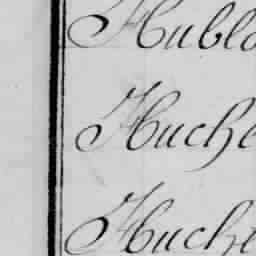 Hublo
Huche
Huche